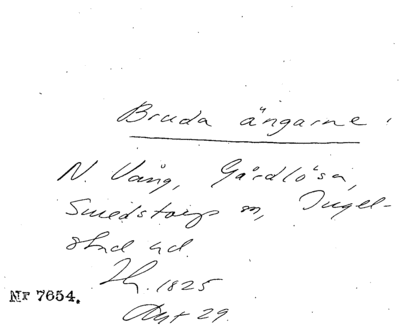 Bruda ängarne.
N. Vång, Gårdlösa,
Smedstorps sn, Ingel-
stad hd.
Th. 1825
Akt 29.
Nr 7654.